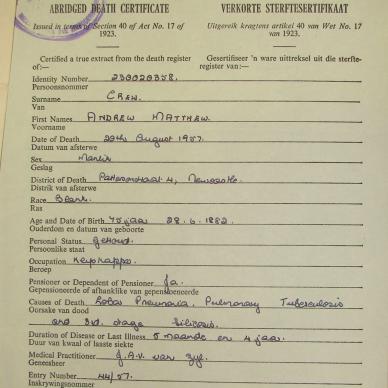 ABRIDGED DEATH CERTIFICATE VERKORTE STERFTESERTIFIKAAT
Issued in terms of Section 40 of Act No. 17 of 1923.
Uitgereik kragtens artikel 40 van Wet No. 17 van 1923.
Certified a true extract from the death register of:—
Gesertifiseer 'n ware uittreksel uit die sterfteregister van:—
Identity Number 230020358.
Persoonsnommer
Surname CREW.
Van
First Names ANDREW MATTHEW.
Voorname
Date of Death 20th August 1957.
Datum van afsterwe
Sex Manlik
Geslag
District of Death 4, Newcastle.
Distrik van afsterwe
Race Blank.
Ras
Age and Date of Birth 75 jaar 28.6.1882.
Ouderdom en datum van geboorte
Personal Status Getroud.
Persoonlike staat
Occupation
Beroep
Pensioner or Dependent of Pensioner Ja.
Gepensioneerde of afhanklike van gepensioeneerde
Causes of Death Lobar Pneumonia, Pulmonary Tuberculosis
Oorsake van dood
and 3rd stage Silicosis.
Duration of Disease or Last Illness 5 maande en 4 jaar.
Duur van kwaal of laaste siekte
Medical Practitioner J.A.V. van Zyl.
Geneesheer
Entry Number 44/57.
Inskrywingsnommer